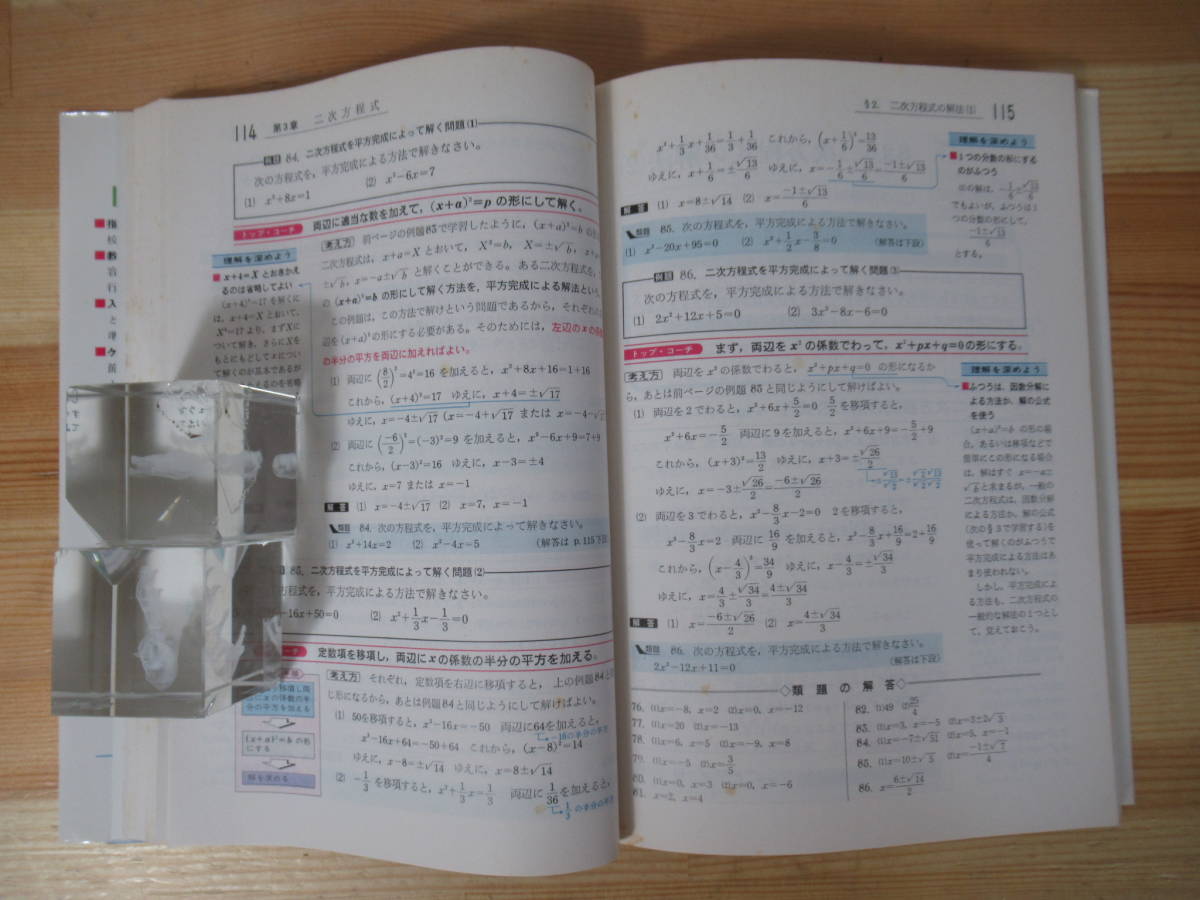 114 第3章 二次方程式
例題 84. 二次方程式を平方完成によって解く問題(1)
次の方程式を,平方完成による方法で解きなさい。
(1) x²+8x=1 (2) x²−6x=7
トップ・コーチ 両辺に適当な数を加えて,(x+a)²=p の形にして解く。
理解を深めよう
■ x+4=X とおきかえ
るのは省略してよい
(x+4)²=17 を解くに
は,x+4=X とおいて,
X²=17 より,まずXに
ついて解き,さらにXを
もとにもどしてxについ
て解くのが基本であるが
考え方 前ページの例題83で学習したように,(x+a)²=b の
二次方程式は,x+a=X とおいて,X²=b, X=±√b, x+a=
±√b, x=−a±√b と解くことができる。ある二次方程式を,
の (x+a)²=b の形にして解く方法を,平方完成による解法という。
この例題は,この方法で解けという問題であるから,それぞれ
辺を(x+a)²の形にする必要がある。そのためには,左辺のxの係数
の半分の平方を両辺に加えればよい。
(1) 両辺に (8/2)²=4²=16 を加えると,x²+8x+16=1+16
これから,(x+4)²=17 ゆえに,x+4=±√17
ゆえに,x=−4±√17 (x=−4+√17 または x=−4−√17)
(2) 両辺に (−6/2)²=(−3)²=9 を加えると,x²−6x+9=7+9
これから,(x−3)²=16 ゆえに,x−3=±4
ゆえに,x=7 または x=−1
解答 (1) x=−4±√17 (2) x=7, x=−1
類題 84. 次の方程式を,平方完成によって解きなさい。
(1) x²+14x=2 (2) x²−4x=5 (解答は p.115下段)
85. 二次方程式を平方完成によって解く問題(2)
方程式を,平方完成による方法で解きなさい。
−16x+50=0 (2) x²+1/3x−1/3=0
コーチ 定数項を移項し,両辺にxの係数の半分の平方を加える。
考え方 それぞれ,定数項を右辺に移項すると,上の例題84と同
じ形になるから,あとは例題84と同じようにして解けばよい。
(1) 50を移項すると,x²−16x=−50 両辺に64を加えると,
−16の半分の平方
x²−16x+64=−50+64 これから,(x−8)²=14
ゆえに,x−8=±√14 ゆえに,x=8±√14
(2) −1/3 を移項すると,x²+1/3x=1/3 両辺に 1/36 を加えると,
1/3 の半分の平方
(x+a)²=b の形
にする
解を求める
§2. 二次方程式の解法(1) 115
x²+1/3x+1/36=1/3+1/36 これから,(x+1/6)²=13/36
ゆえに,x+1/6=±√13/6 ゆえに,x=−1/6±√13/6=−1±√13/6
解答 (1) x=8±√14 (2) x=−1±√13/6
理解を深めよう
■ 1つの分数の形にする
のがふつう
の解は,−1/6±√13/6
でもよいが,ふつうは1
つの分数の形にして,
−1±√13/6
とする。
類題 85. 次の方程式を,平方完成によって解きなさい。
(1) x²−20x+95=0 (2) x²+1/2x−3/8=0 (解答は下段)
例題 86. 二次方程式を平方完成によって解く問題(3)
次の方程式を,平方完成による方法で解きなさい。
(1) 2x²+12x+5=0 (2) 3x²−8x−6=0
トップ・コーチ まず,両辺を x² の係数でわって,x²+px+q=0の形にする。
考え方 両辺を x² の係数でわると,x²+px+q=0 の形になるか
ら,あとは前ページの例題 85 と同じようにして解けばよい。
(1) 両辺を2でわると,x²+6x+5/2=0 5/2を移項すると,
x²+6x=−5/2 両辺に9を加えると,x²+6x+9=−5/2+9
これから,(x+3)²=13/2 ゆえに,x+3=±√26/2
±√13/√2=±√2√13/√2√2
ゆえに,x=−3±√26/2=−6±√26/2
(2) 両辺を3でわると,x²−8/3x−2=0 2を移項すると,
x²−8/3x=2 両辺に 16/9 を加えると,x²−8/3x+16/9=2+16/9
これから,(x−4/3)²=34/9 ゆえに,x−4/3=±√34/3
ゆえに,x=4/3±√34/3=4±√34/3
解答 (1) x=−6±√26/2 (2) x=4±√34/3
理解を深めよう
■ ふつうは,因数分解に
よる方法か,解の公式
を使う
(x+a)²=b の形の場
合,あるいは移項などで
簡単にこの形になる場合
は,解はすぐ x=−a±
√bと求まるが,一般の
二次方程式は,因数分解
による方法か,解の公式
(次の§3で学習する)を
使って解くのがふつうで
平方完成による方法はあ
まり使われない。
しかし,平方完成によ
る方法も,二次方程式の
一般的な解法の1つとし
て,覚えておこう。
類題 86. 次の方程式を,平方完成による方法で解きなさい。
2x²−12x+11=0 (解答は下段)
◇類題の解答◇
76. (1)x=−8, x=2 (2)x=0, x=−12
77. (1)x=20 (2)x=−13
78. (1)x=6, x=5 (2)x=−9, x=8
79. (1)x=−5 (2)x=3/5
80. (1)x=0, x=3 (2)x=0, x=−6
81. x=2, x=4
82. (1)49 (2)25/4
83. (1)x=3, x=−5 (2)x=3±2√3
84. (1)x=−7±√51 (2)x=5, x=−1
85. (1)x=10±√5 (2)x=−1±√7/4
86. x=6±√14/2